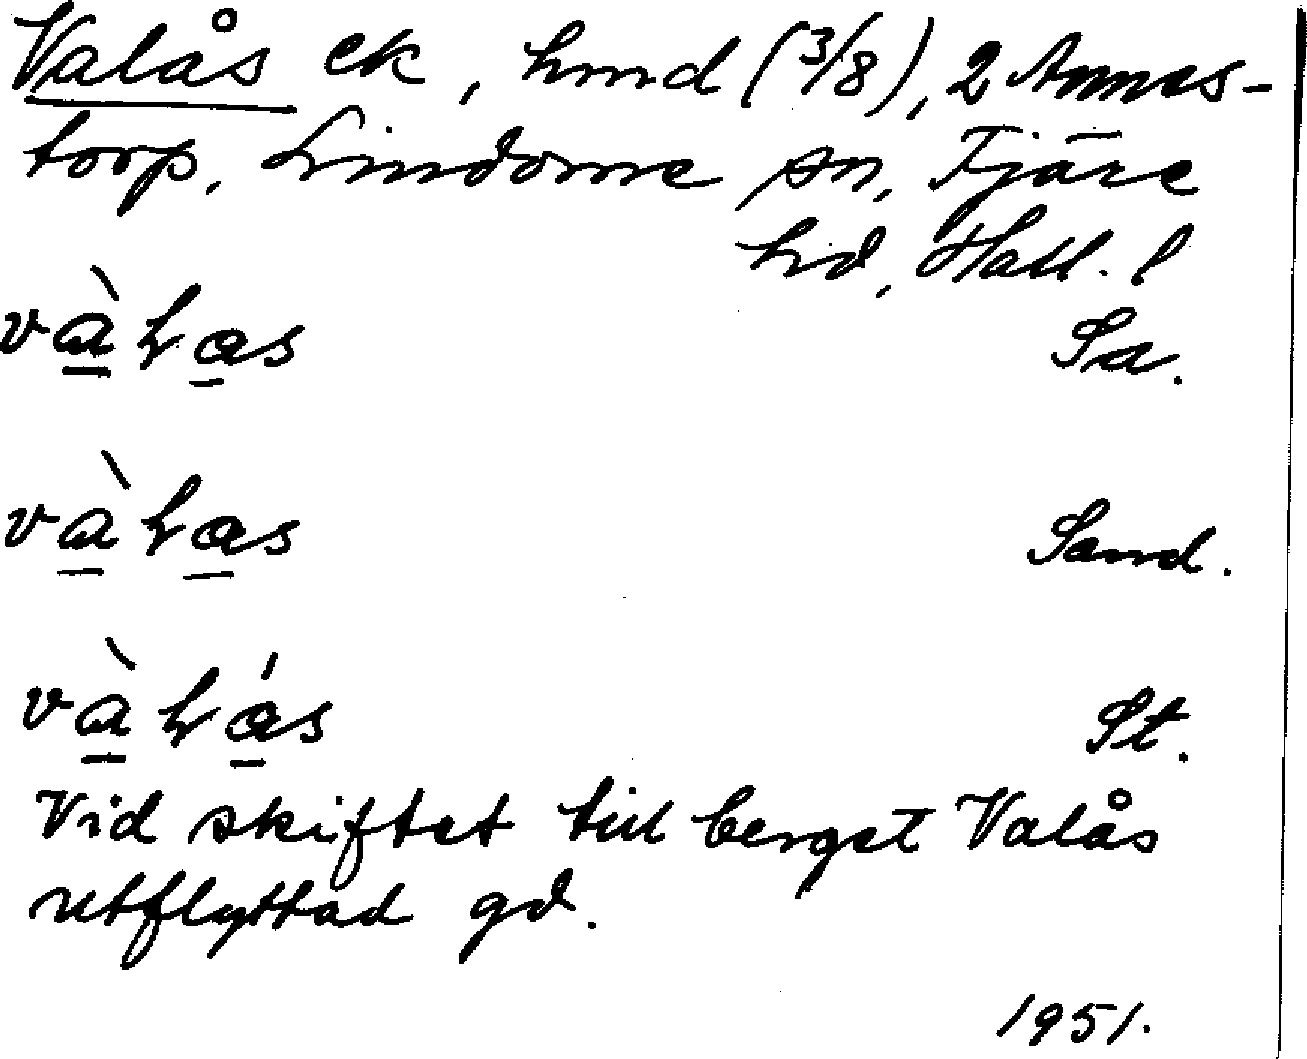 Valås ek, hmd (3/8), 2 Annes-
torp, Lindome sn, Fjäre
hd, Hall. l
vàłɑs Sa.
vàłɑs Sand.
vàłɑ́s St.
Vid skiftet till berget Valås
utflyttad gd.
1951.